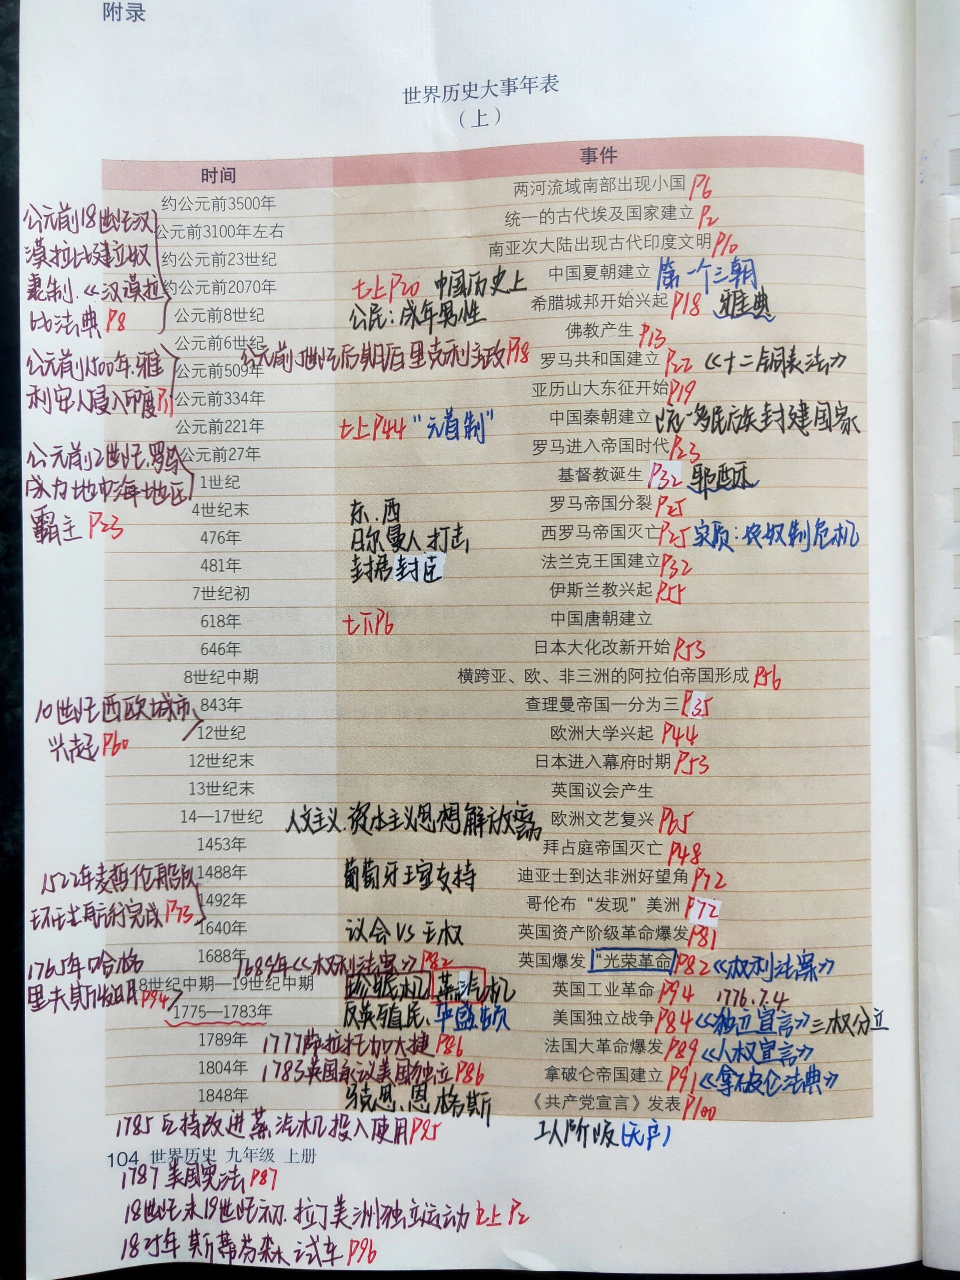 附录
世界历史大事年表
（上）
时间 事件
约公元前3500年 两河流域南部出现小国 P6
公元前3100年左右 统一的古代埃及国家建立 P2
约公元前23世纪 南亚次大陆出现古代印度文明 P10
约公元前2070年 七上P20 中国历史上 中国夏朝建立 第一个王朝
公元前8世纪 公民：成年男性 希腊城邦开始兴起 P18 雅典
公元前18世纪汉
漠拉比建立奴
隶制.《汉谟拉
比法典 P8
公元前6世纪 佛教产生 P13
公元前5世纪后期伯里克利主政P18
公元前509年 罗马共和国建立 P22 《十二铜表法》
公元前334年 亚历山大东征开始 P19
公元前1500年.雅
利安人侵入印度P11
公元前221年 七上P44 "元首制" 中国秦朝建立 统一多民族封建国家
公元前27年 罗马进入帝国时代 P23
1世纪 基督教诞生 P32 耶稣
公元前2世纪.罗马
成为地中海地区
霸主 P23
4世纪末 东.西 罗马帝国分裂 P25
476年 日尔曼人打击 西罗马帝国灭亡 P25 实质：奴隶制危机
481年 封君封臣 法兰克王国建立 P32
7世纪初 伊斯兰教兴起 P55
618年 七下P6 中国唐朝建立
646年 日本大化改新开始 P53
8世纪中期 横跨亚、欧、非三洲的阿拉伯帝国形成 P56
843年 查理曼帝国一分为三 P35
10世纪西欧城市
兴起 P60
12世纪 欧洲大学兴起 P44
12世纪末 日本进入幕府时期 P53
13世纪末 英国议会产生
14—17世纪 人文主义.资本主义思想解放运动 欧洲文艺复兴 P65
1453年 拜占庭帝国灭亡 P48
1488年 葡萄牙王室支持 迪亚士到达非洲好望角 P72
1492年 哥伦布“发现”美洲 P72
1522年麦哲伦船队
环球航行完成P73
1640年 议会VS王权 英国资产阶级革命爆发 P81
1688年 1689年《权利法案》P82 英国爆发“光荣革命” P82《权利法案》
1765年哈格
里夫斯发明P94
18世纪中期—19世纪中期 珍妮机 蒸汽机 英国工业革命 P94 1776.7.4
1775—1783年 反英殖民、华盛顿 美国独立战争 P84《独立宣言》三权分立
1789年 1777萨拉托加大捷 P86 法国大革命爆发 P89《人权宣言》
1804年 1783英国承认美国独立 P86 拿破仑帝国建立 P91《拿破仑法典》
1848年 马克思.恩格斯 《共产党宣言》发表 P100
1785瓦特改进蒸汽机投入使用P95 工人阶级(无产)
104 世界历史 九年级 上册
1787美国宪法 P87
18世纪末19世纪初.拉丁美洲独立运动 九上P2
1825年斯蒂芬森试车 P96